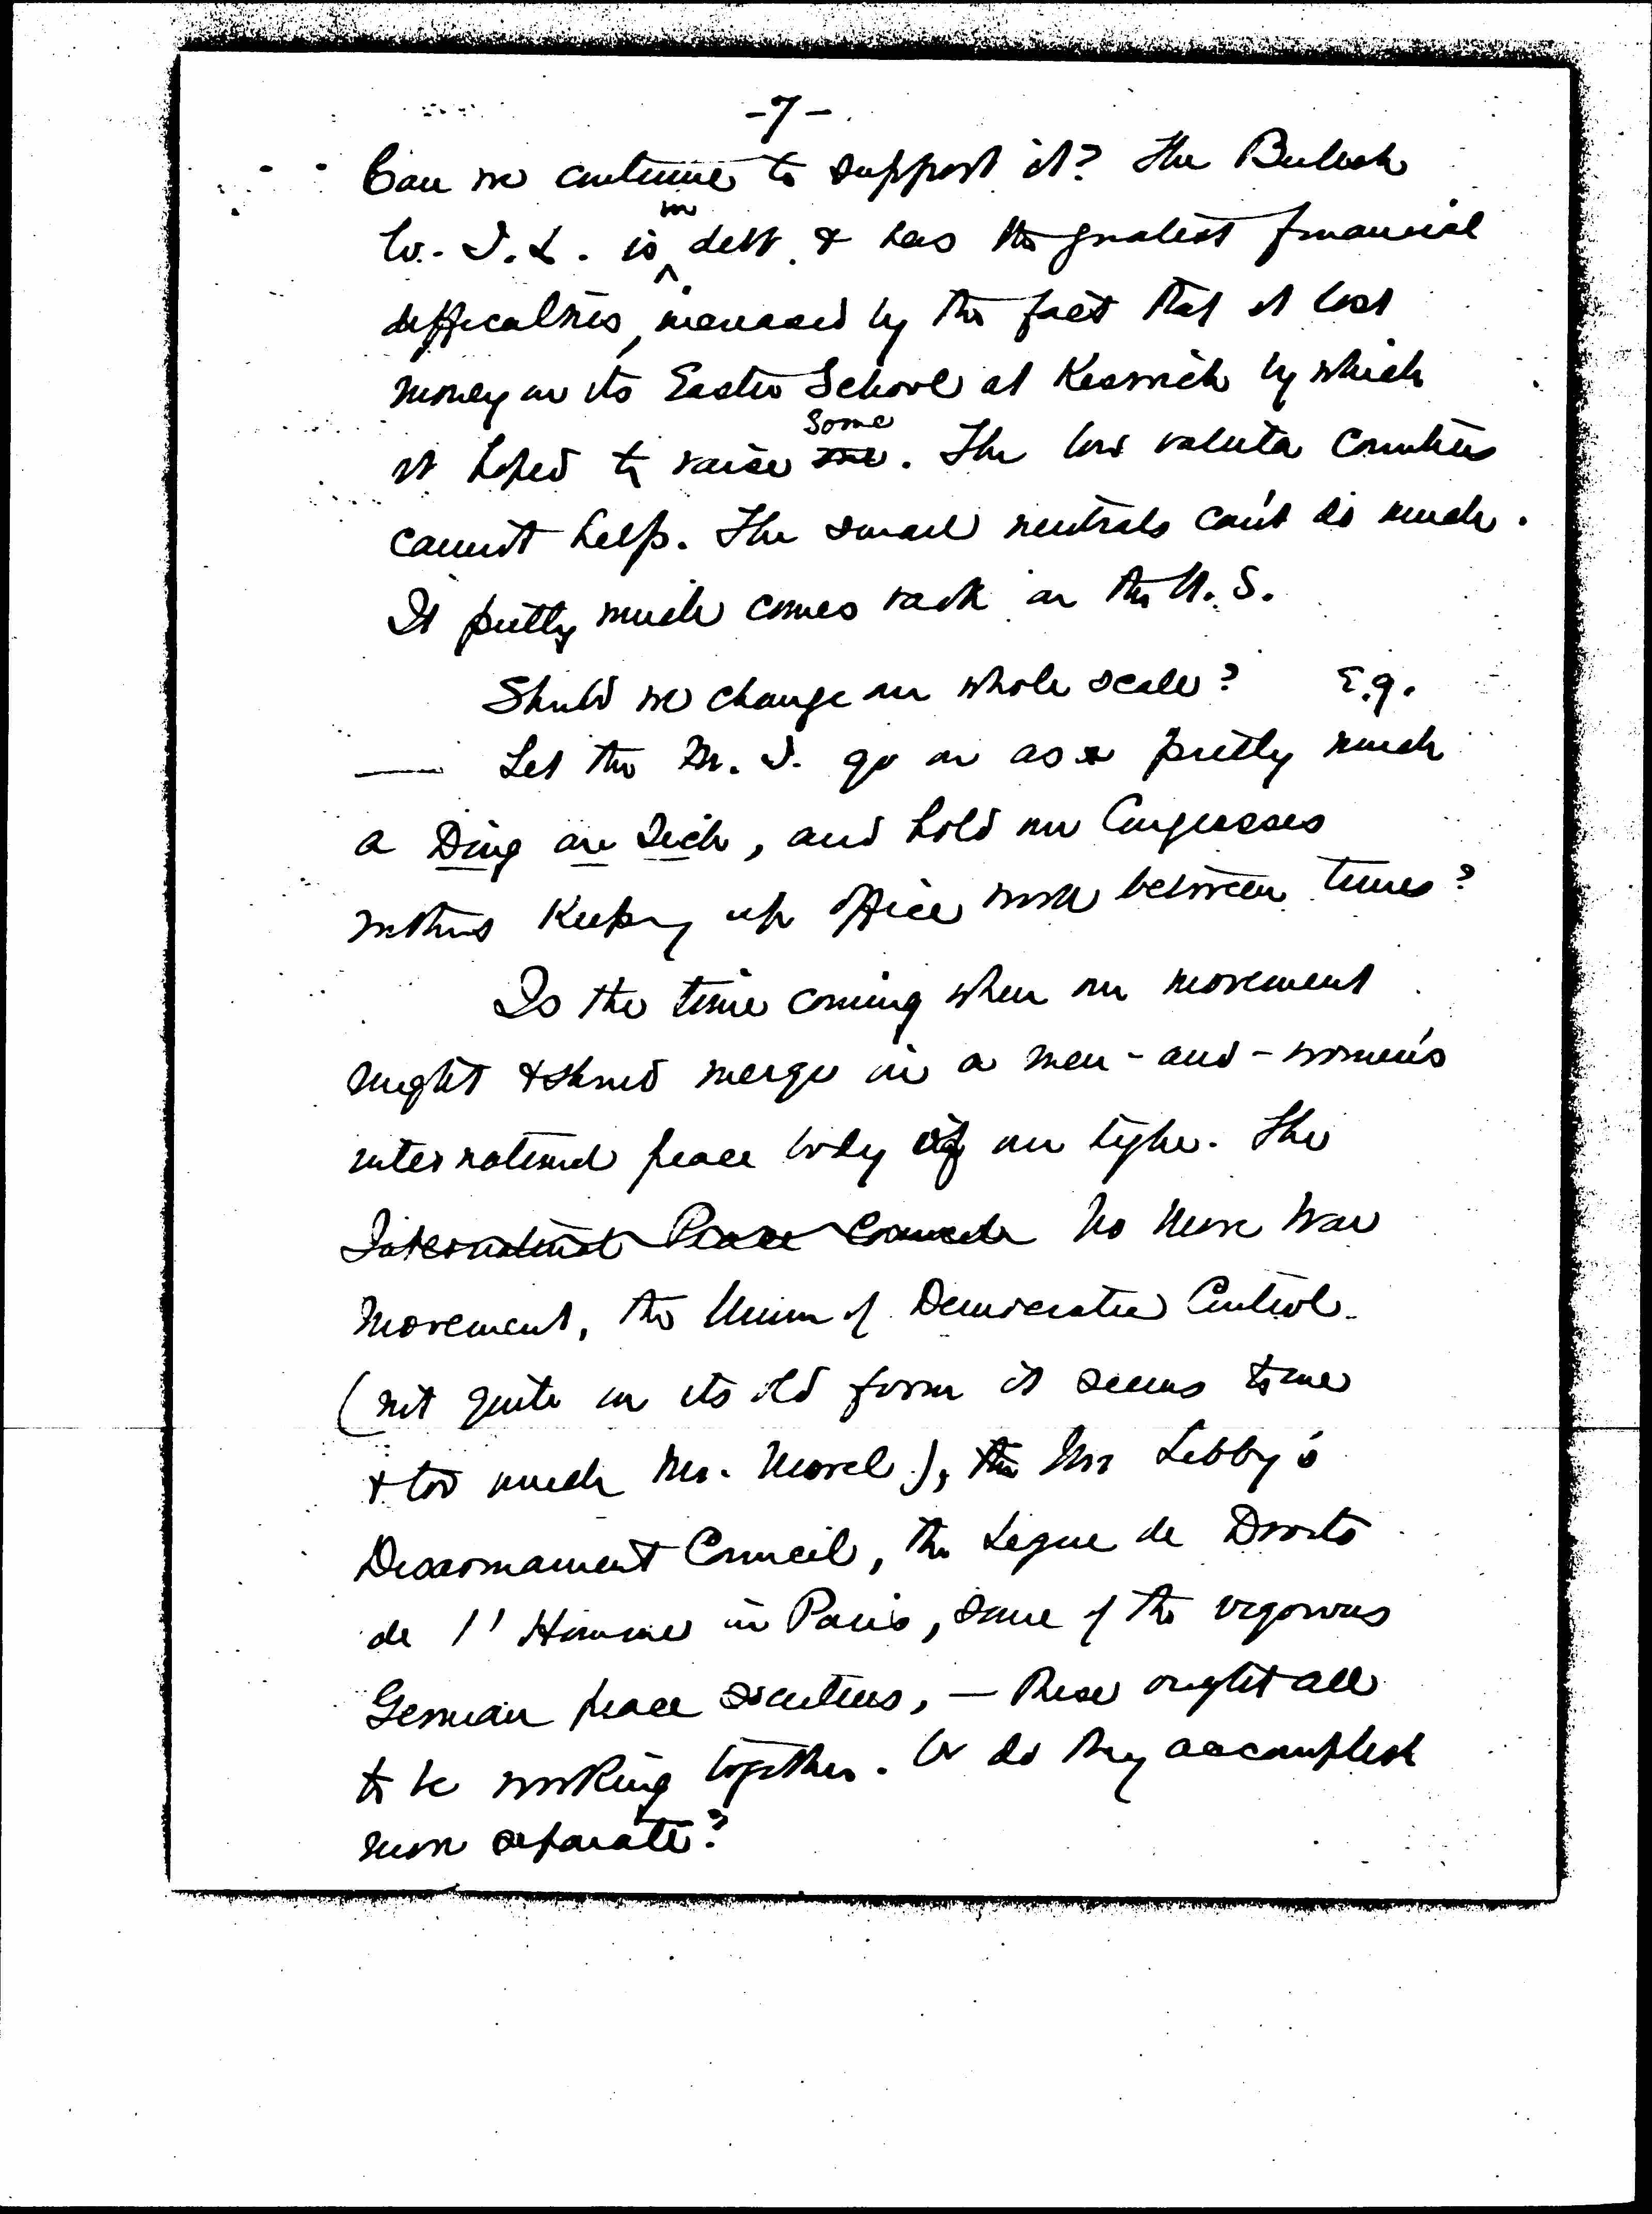 -7-
Can we continue to support it? The British
W.I.L. is in debt & has the greatest financial
difficulties, increased by the fact that it lost
money on its Easter School at Keswick by which
it hoped to raise some. The low valuta countries
cannot help. The small neutrals can't do much.
It pretty much comes back on the U.S.
Should we change our whole scale? E.g.
— Let the M. I. go on as pretty much
a Ding an Sich, and hold our Congresses
without keeping up office work between times?
Is the time coming when our movement
might & should merge in a men-and-women's
international peace body of our type. The
International Peace Council No More War
Movement, the Union of Democratic Control
(not quite in its old form it seems to me
& too much Mr. Morel), the Mr Libby's
Disarmament Council, the Ligue de Droits
de l'Homme in Paris, some of the vigorous
German peace societies, — these ought all
to be working together. Or do they accomplish
more separate?